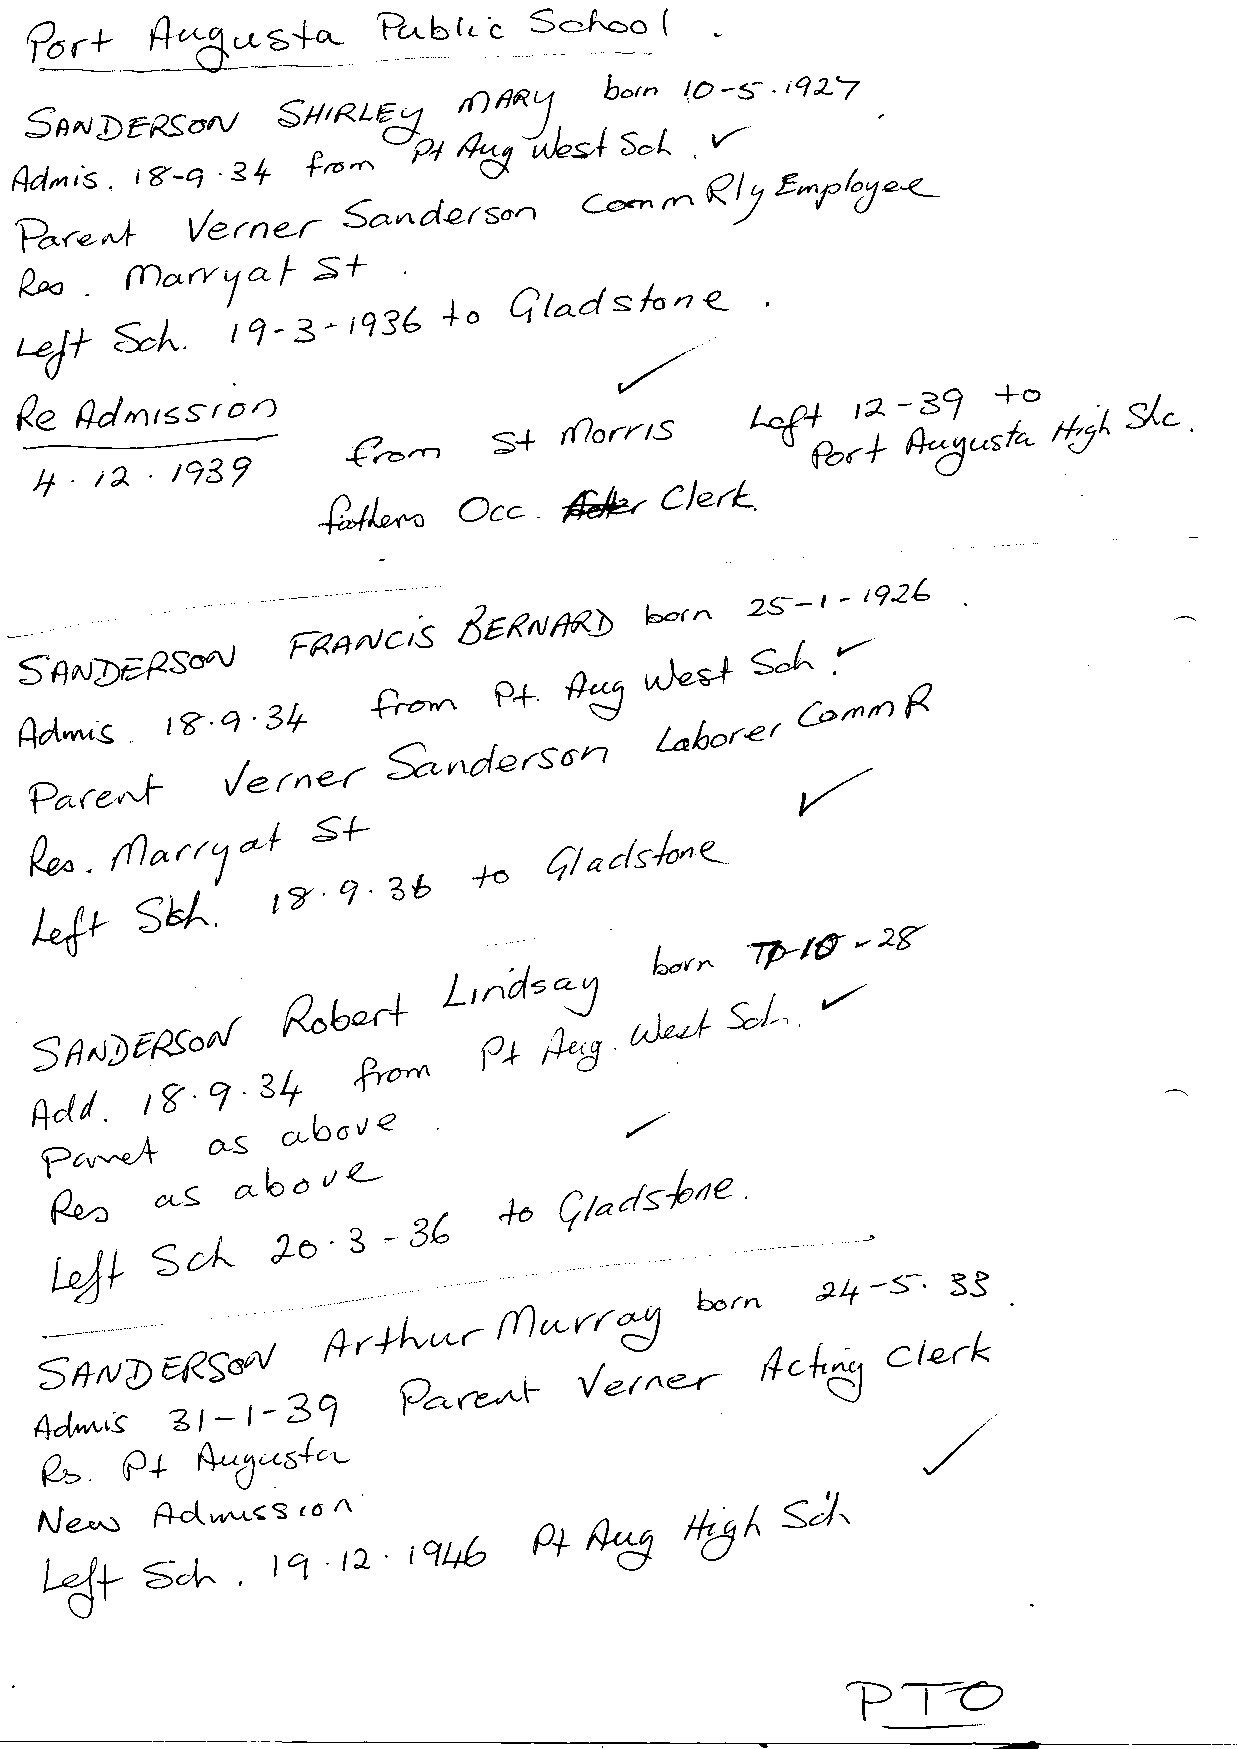 Port Augusta Public School.
SANDERSON SHIRLEY MARY born 10-5.1927
Admis. 18-9.34 from Pt Aug West Sch. ✓
Parent Verner Sanderson Comm Rly Employee
Res. Marryat St.
Left Sch. 19-3-1936 to Gladstone.
✓
Re Admission
4.12.1939 from St Morris Left 12-39 to
Port Augusta High Slc.
fathers Occ. Clerk.
SANDERSON FRANCIS BERNARD born 25-1-1926.
Admis. 18.9.34 from Pt. Aug West Sch. ✓
Parent Verner Sanderson Laborer Comm R
✓
Res. Marryat St
Left Sch. 18.9.36 to Gladstone
SANDERSON Robert Lindsay born 10-28
Add. 18.9.34 from Pt Aug. West Sch. ✓
Parnet as above.
✓
Res as above
Left Sch 20.3-36 to Gladstone.
SANDERSON Arthur Murray born 24-5.33.
Admis 31-1-39 Parent Verner Acting Clerk
Rs. Pt Augusta
✓
New Admission
Left Sch. 19.12.1946 Pt Aug High Sch
PTO